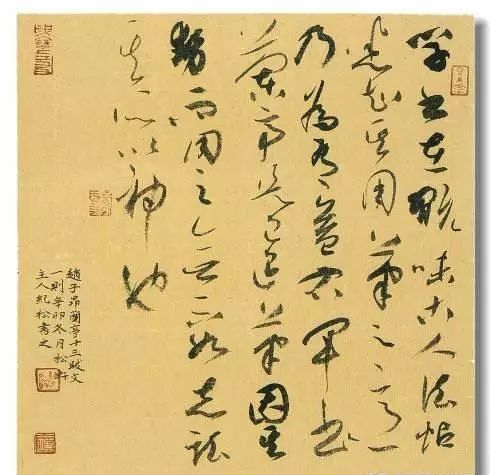 學書在玩味古人法帖
悉知其用筆之意
乃為有益右軍書
蘭亭是已退筆因其
勢而用之無不如志茲
其所以神也
趙子昂蘭亭十三跋文
一則辛卯冬月松軒
主人紀松書之